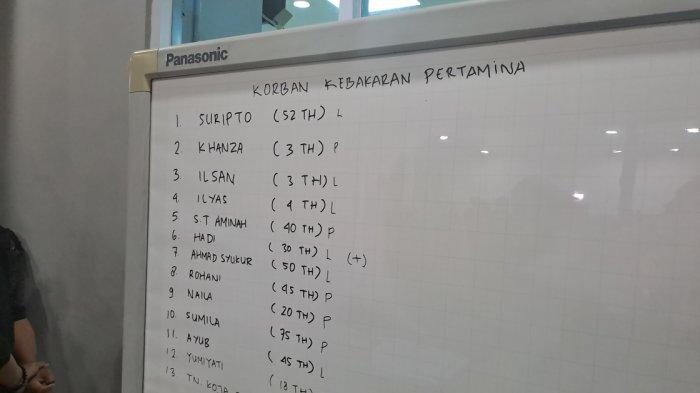 Panasonic
KORBAN KEBAKARAN PERTAMINA
1. SURIPTO (52 TH) L
2 KHANZA (3 TH) P
3. ILSAN (3 TH) L
4. ILYAS (4 TH) L
5. S.T AMINAH (40 TH) P
6. HADI (30 TH) L (+)
7 AHMAD SYUKUR (50 TH) L
8. ROHANI (45 TH) P
9 NAILA (20 TH) P
10. SUMILA (75 TH) P
11. AYUB (45 TH) L
12. YUMIYATI (18 TH)
13 TN.